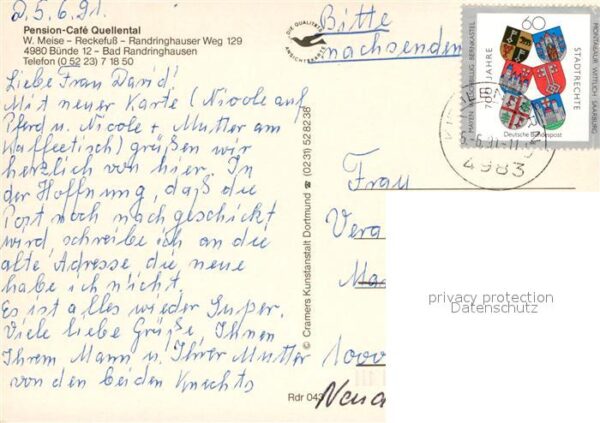 D. 5. 6. 91.
Pension-Café Quellental
W. Meise – Reckefuß – Randringhauser Weg 129
4980 Bünde 12 – Bad Randringhausen
Telefon (0 52 23) 7 18 50
Liebe Frau David!
Mit neuer Karte (Nicole auf
Pferd u. Nicole + Mutter am
Kaffeetisch) grüßen wir
herzlich von hier. In
der Hoffnung, daß die
Post noch nachgeschickt
wird, schreibe ich an die
alte Adresse, die neue
habe ich nicht.
Es ist alles wieder super.
Viele liebe Grüße, Ihnen
Ihrem Mann u. Ihrer Mutter
von den beiden Knechts
DIE QUALITÄTS
ANSICHTSKARTE
© Cramers Kunstanstalt Dortmund ☎ (0231) 528236
Rdr 043
Bitte
nachsenden
60
700 JAHRE
STADTRECHTE
MAYEN WELSCHBILLIG BERNKASTEL
MONTABAUR WITTLICH SAARBURG
Deutsche Bundespost
6.91-11
4983
Frau
Vera
1000
privacy protection
Datenschutz